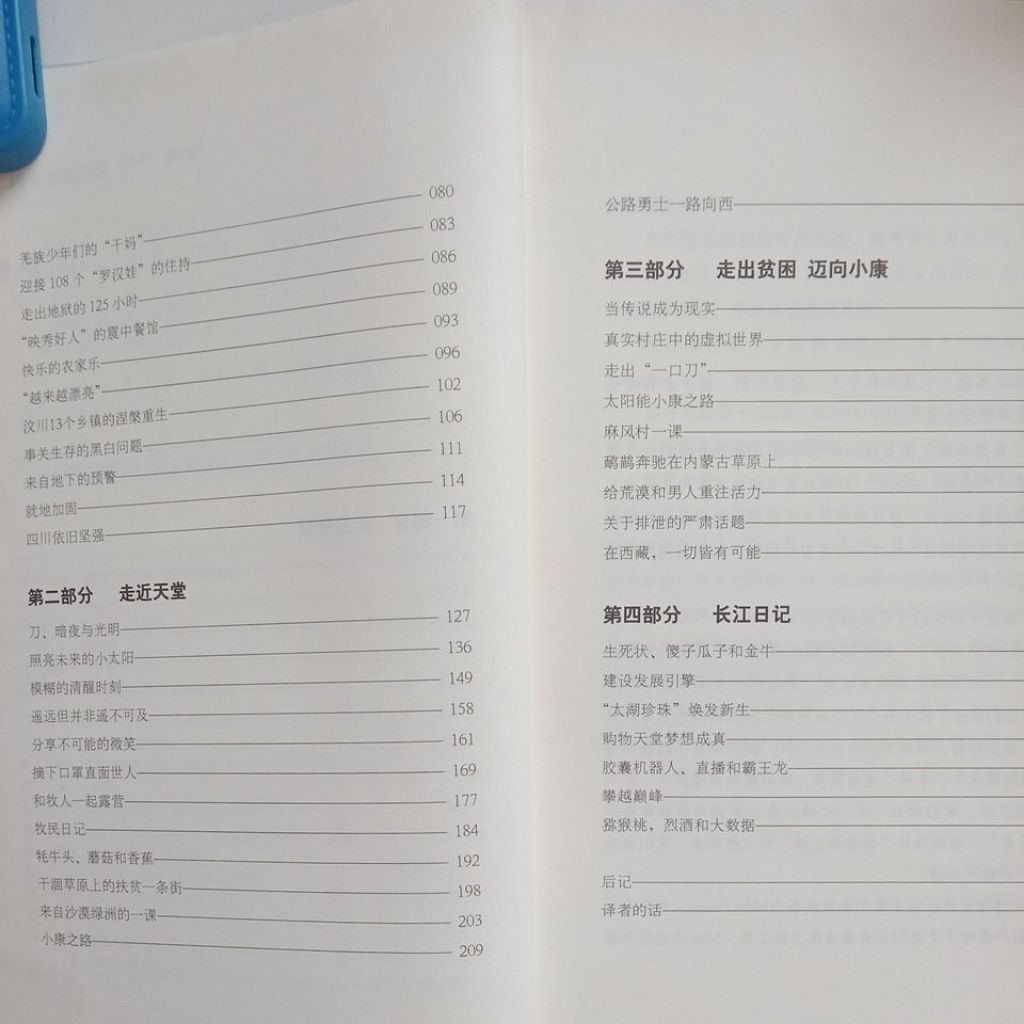 羌族少年们的“干妈” 080
迎接 108 个“罗汉娃”的住持 083
走出地狱的 125 小时 086
“映秀好人”的震中餐馆 089
快乐的农家乐 093
“越来越漂亮” 096
汶川13个乡镇的涅槃重生 102
事关生存的黑白问题 106
来自地下的预警 111
就地加固 114
四川依旧坚强 117
第二部分 走近天堂
刀、暗夜与光明 127
照亮未来的小太阳 136
模糊的清醒时刻 149
遥远但并非遥不可及 158
分享不可能的微笑 161
摘下口罩直面世人 169
和牧人一起露营 177
牧民日记 184
牦牛头、蘑菇和香蕉 192
干涸草原上的扶贫一条街 198
来自沙漠绿洲的一课 203
小康之路 209
公路勇士一路向西
第三部分 走出贫困 迈向小康
当传说成为现实
真实村庄中的虚拟世界
走出“一口刀”
太阳能小康之路
麻风村一课
鸸鹋奔驰在内蒙古草原上
给荒漠和男人重注活力
关于排泄的严肃话题
在西藏，一切皆有可能
第四部分 长江日记
生死状、傻子瓜子和金牛
建设发展引擎
“太湖珍珠”焕发新生
购物天堂梦想成真
胶囊机器人、直播和霸王龙
攀越巅峰
猕猴桃，烈酒和大数据
后记
译者的话